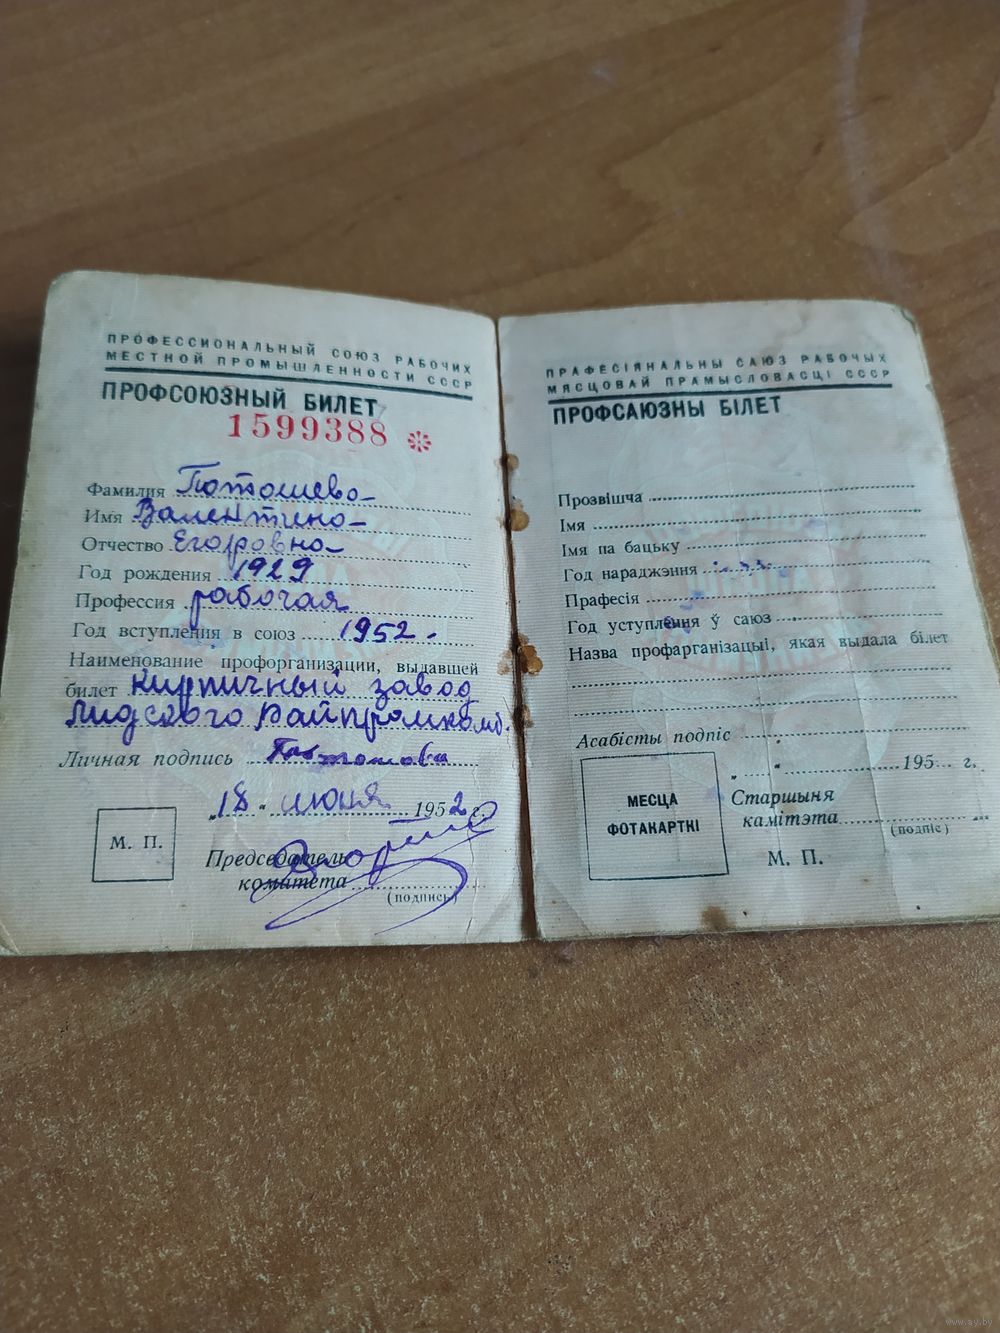 ПРОФЕССИОНАЛЬНЫЙ СОЮЗ РАБОЧИХ
МЕСТНОЙ ПРОМЫШЛЕННОСТИ СССР
ПРОФСОЮЗНЫЙ БИЛЕТ
1599388
Фамилия
Имя Валентина
Отчество Егоровна
Год рождения 1929
Профессия рабочая
Год вступления в союз 1952.
Наименование профорганизации, выдавшей
билет Кирпичный завод
Лидского Райпромкомб.
Личная подпись
„18“ июня 1952 г.
М. П.
Председатель
комитета
(подпись)
ПРАФЕСІЯНАЛЬНЫ САЮЗ РАБОЧЫХ
МЯСЦОВАЙ ПРАМЫСЛОВАСЦІ СССР
ПРОФСАЮЗНЫ БІЛЕТ
Прозвішча
Імя
Імя па бацьку
Год нараджэння
Прафесія
Год уступлення ў саюз
Назва профарганізацыі, якая выдала білет
Асабісты подпіс
„ “ 195 г.
МЕСЦА
ФОТАКАРТКІ
Старшыня
камітэта
(подпіс)
М. П.
www.ay.by